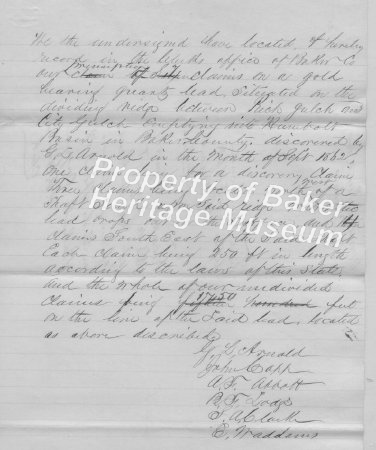 We the undersigned have located, & hereby
record in the Clerks office of Baker Co
our claims on a gold
bearing quartz lead, Situated on the
dividing ridge between Rich Gulch and
Gulch emptying into Humbolt
Basin in Baker County. discovered by
G. L. Arnold in the month of Sept 1862,
One claim for a discovery claim
Three claims
Shaft
lead crops out
claims South East of the Said
Each claim being 250 feet in length
according to the laws of this State
and the whole of our undivided
claims being 1750 feet
on the line of the Said lead, located
as above discribed.
G. L. Arnold
John Capp
A. F. Abbott
B. F. Dodge
S. A. Clark
E. Waddams
Property of Baker
Heritage Museum